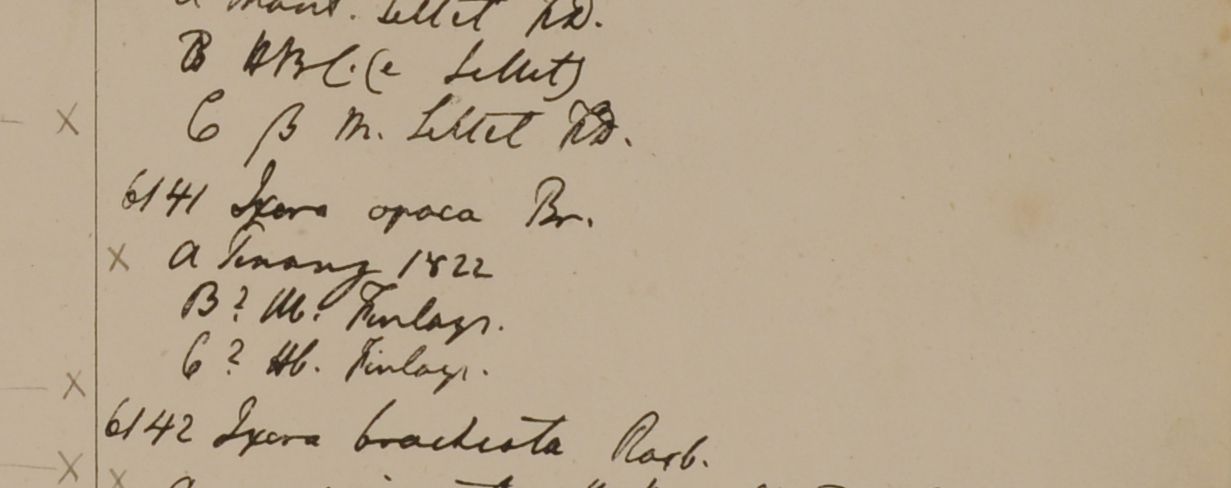 Mont. Sillet FD.
B HBC. (e Sillet)
C β M. Sillet FD.
6141 Ixora opaca Br.
× a Penang 1822
B? M. Finlays.
C? Hb. Finlays.
6142 Ixora brachiata Roxb.